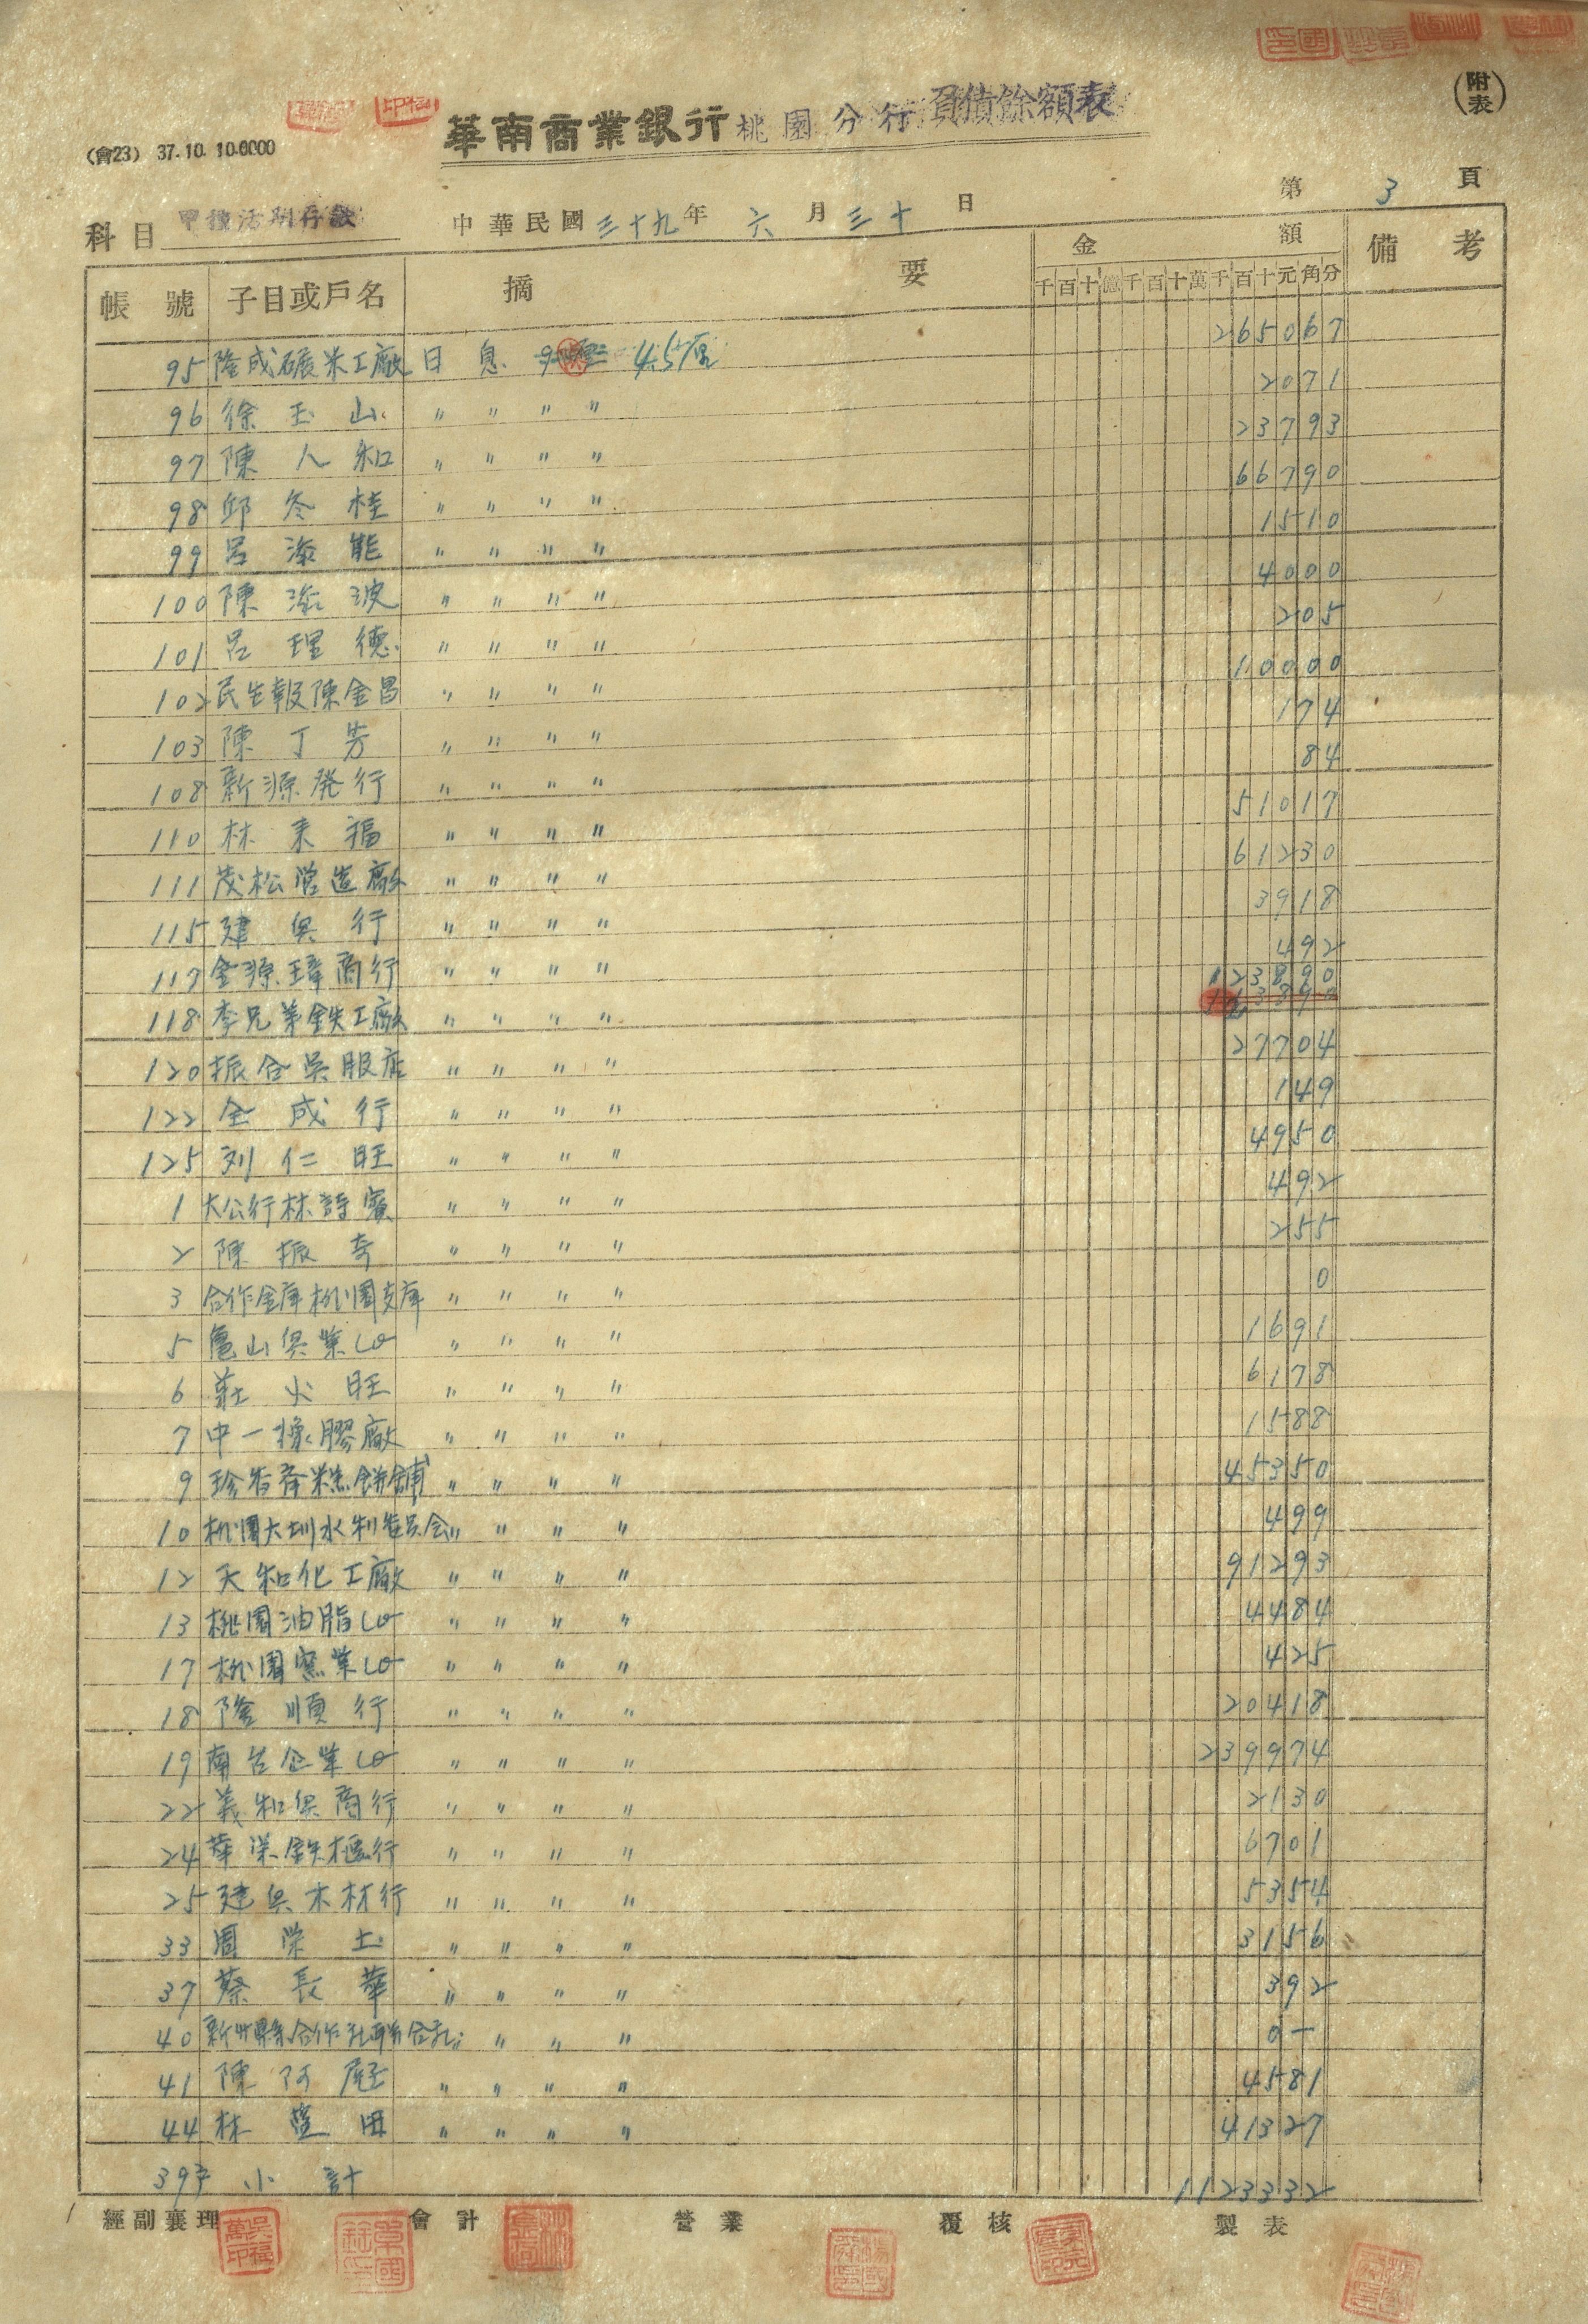 (附表)
華南商業銀行桃園分行負債餘額表
(會23) 37.10.10.0000
第3頁
科目 甲種活期存款 中華民國三十九年六月三十日
帳號 子目或戶名 摘要 金額 備考
千百十億千百十萬千百十元角分
95 隆成礦米工廠 日息 4.5厘 265067
96 徐玉山 〃 〃 〃 〃 2071
97 陳人和 〃 〃 〃 〃 23793
98 邱冬桂 〃 〃 〃 〃 66790
99 呂添能 〃 〃 〃 〃 1510
100 陳添波 〃 〃 〃 〃 4000
101 呂理德 〃 〃 〃 〃 205
102 民生報陳金昌 〃 〃 〃 〃 10000
103 陳丁芳 〃 〃 〃 〃 174
108 新源発行 〃 〃 〃 〃 84
110 林来福 〃 〃 〃 〃 51017
111 茂松営造廠 〃 〃 〃 〃 61230
115 建興行 〃 〃 〃 〃 3918
117 金源璋商行 〃 〃 〃 〃 492
118 李兄弟鉄工廠 〃 〃 〃 〃 123890
120 振合吳服店 〃 〃 〃 〃 27704
122 全成行 〃 〃 〃 〃 149
125 刘仁旺 〃 〃 〃 〃 4950
1 大公行林詩賓 〃 〃 〃 〃 492
2 陳振奇 〃 〃 〃 〃 255
3 合作金庫桃園支庫 〃 〃 〃 〃 0
5 亀山興業Co 〃 〃 〃 〃 1691
6 莊火旺 〃 〃 〃 〃 6178
7 中一橡膠廠 〃 〃 〃 〃 1588
9 珍香齊糕餅舖 〃 〃 〃 〃 45350
10 桃園大圳水利委員会 〃 〃 〃 〃 499
12 天和化工廠 〃 〃 〃 〃 91293
13 桃園油脂Co 〃 〃 〃 〃 4484
17 桃園窯業Co 〃 〃 〃 〃 425
18 隆順行 〃 〃 〃 〃 20418
19 南台企業Co 〃 〃 〃 〃 239974
22 義和興商行 〃 〃 〃 〃 2130
24 華栄鉄櫃行 〃 〃 〃 〃 6701
25 建興木材行 〃 〃 〃 〃 5354
33 周栄土 〃 〃 〃 〃 3156
37 蔡長華 〃 〃 〃 〃 392
40 新竹縣合作社聯合社 〃 〃 〃 〃 0—
41 陳阿庭 〃 〃 〃 〃 4581
44 林萱田 〃 〃 〃 〃 41327
39戶 小計 1123332
經副襄理 會計 營業 覆核 製表